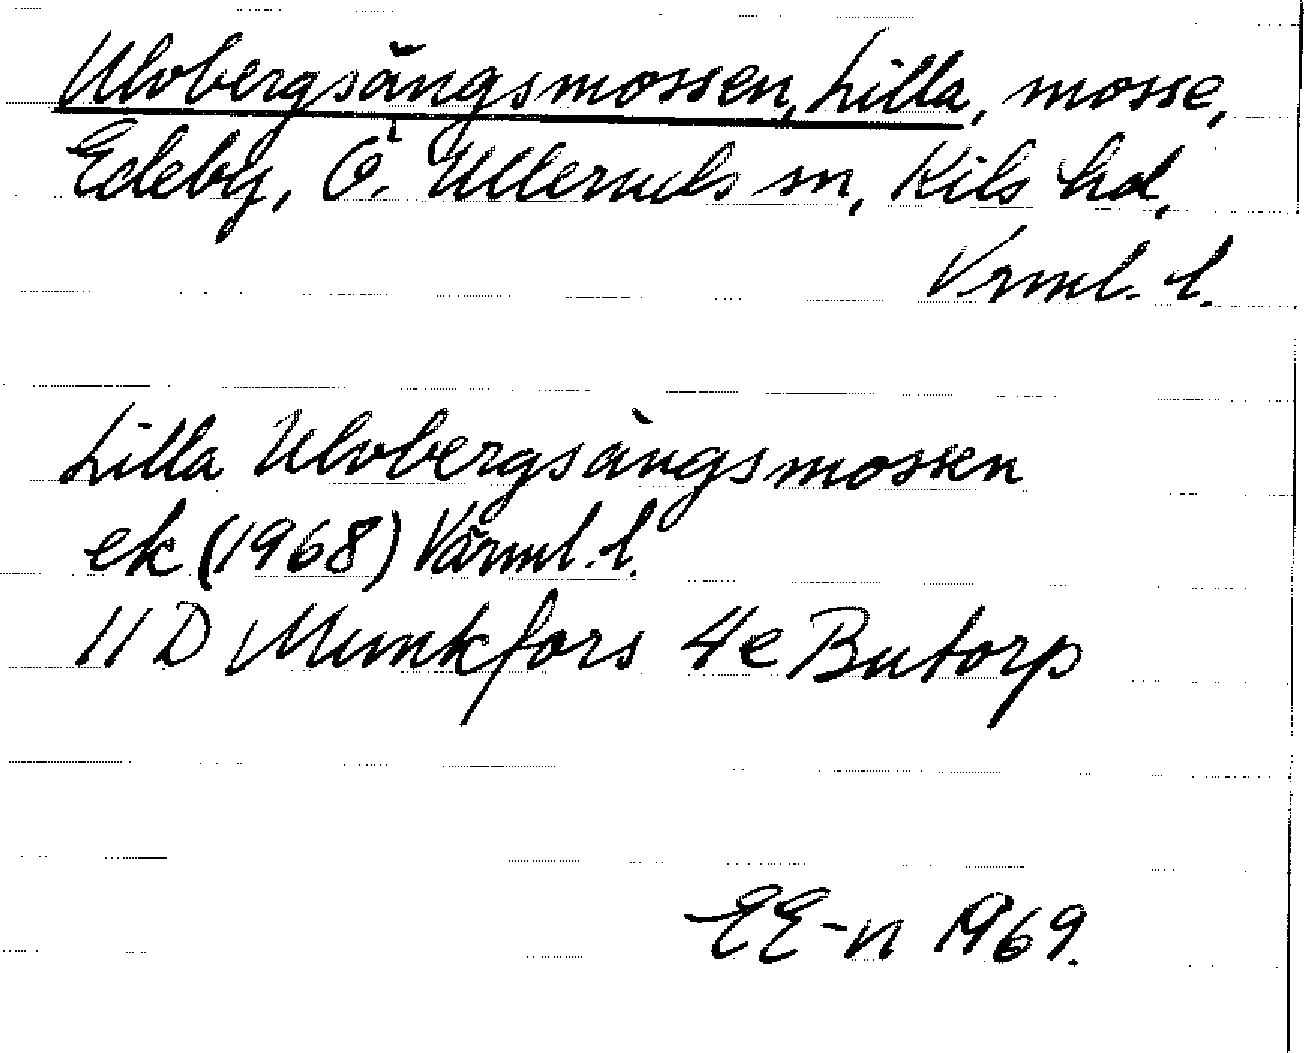 Ulvbergsängsmossen, Lilla, mosse,
Edeby, Ö. Ulleruds sn, Kils hd,
Vrml. l.
Lilla Ulvbergsängsmossen
ek (1968) Värml. l.
11 D Munkfors 4e Butorp
EE-n 1969.